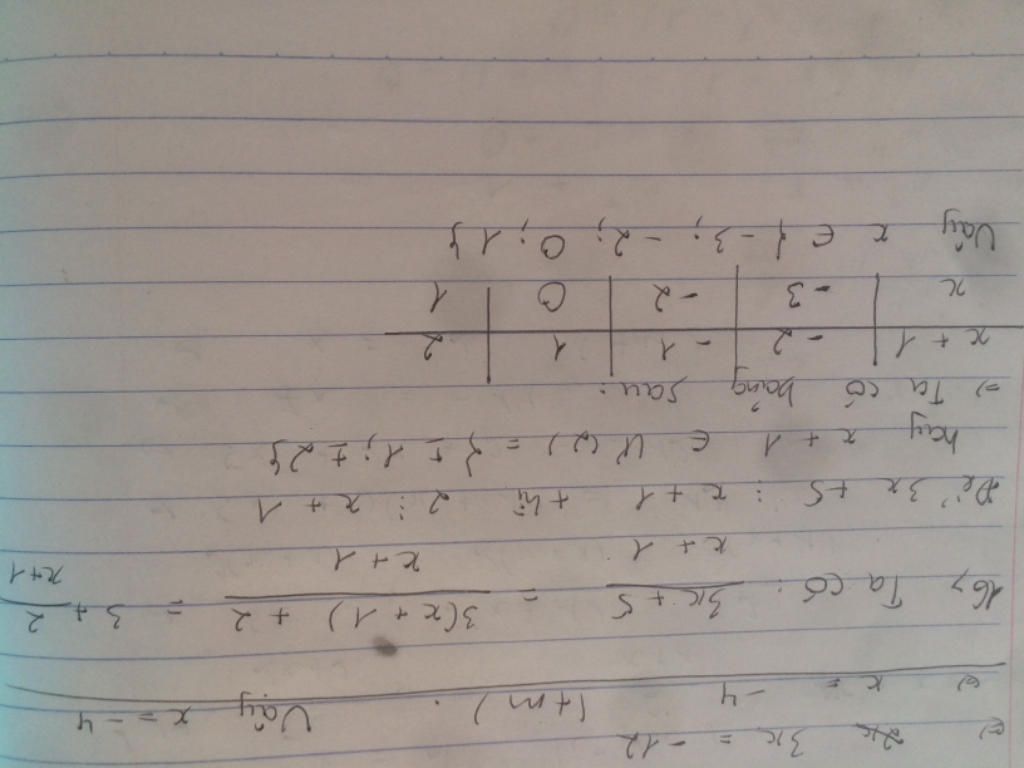 ⇔ 3x = -12
⇔ x = -4 (tm). Vậy x = -4
16> Ta có: (3x + 5)/(x + 1) = (3(x + 1) + 2)/(x + 1) = 3 + 2/(x+1)
Để 3x + 5 ⋮ x + 1 thì 2 ⋮ x + 1
hay x + 1 ∈ Ư(2) = {± 1; ± 2}
⇒ Ta có bảng sau:
x + 1 | -2 | -1 | 1 | 2
x | -3 | -2 | 0 | 1
Vậy x ∈ {-3; -2; 0; 1}